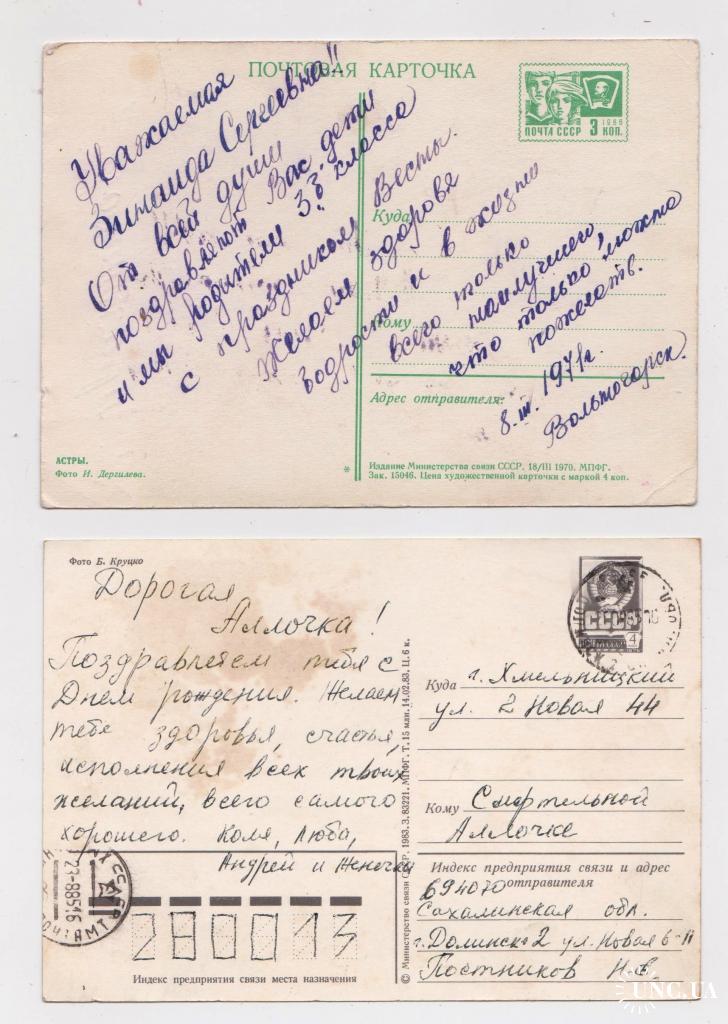 ПОЧТОВАЯ КАРТОЧКА
ПОЧТА СССР 3 КОП.
1966
Уважаемая
Зинаида Сергеевна!!
От всей души
поздравляют Вас дети
и мы родители 3 "З" класса
с праздником Весты.
Желаем здоровя
бодрости и в жизни
всего только
наилучшего,
что только можно
пожелать.
8.III.1971г.
Вольногорск.
Куда
Кому
Адрес отправителя:
АСТРЫ.
Фото И. Дергилева.
*
Издание Министерства связи СССР. 18/III 1970. МПФГ.
Зак. 15046. Цена художественной карточки с маркой 4 коп.
Фото Б. Круцко
Дорогая
Аллочка!
Поздравляем тебя с
Днем рождения. Желаем
тебе здоровья, счастья,
исполнения всех твоих
желаний, всего самого
хорошего. Коля, Люба,
Андрей и Женечка
СССР
4
Куда г. Хмельницкий
ул. 2 Новая 44
Кому Смертельной
Аллочке
Индекс предприятия связи и адрес
отправителя
694070
Сахалинская обл.
г. Долинск-2 ул. Новая 6-11
Постников Н.В.
280013
Индекс предприятия связи места назначения
© Министерство связи СССР. 1983. З. 83221. МПФГ. Т. 15 млн. 14.02.83. Ц. 6 к.
UNC.UA